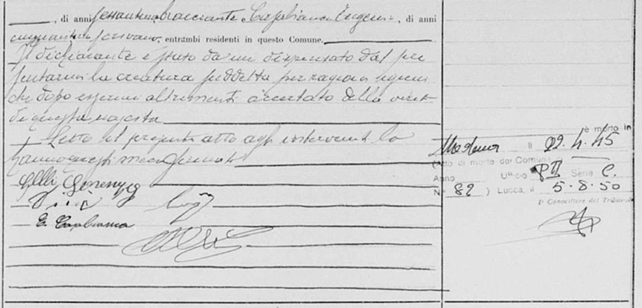 di anni sessantuno bracciante Casabianca Eugenio, di anni
cinquantun scrivano, entrambi residenti in questo Comune.
Il dichiarante è stato da me dispensato dal pre
sentarmi la creatura suddetta per ragioni igieni
che dopo essermi altrimenti accertato della verità
di questa nascita
Letto il presente atto agli intervenuti lo
hanno questi meco firmato
è morto in
Modena il 22.4.45
(Atto di morte del Comune
Anno Ufficio P II Serie C.
N° 82) Lucca, il 5-8-50
Il Cancelliere del Tribunale